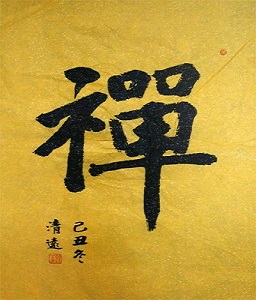 禪
己丑冬
清遠